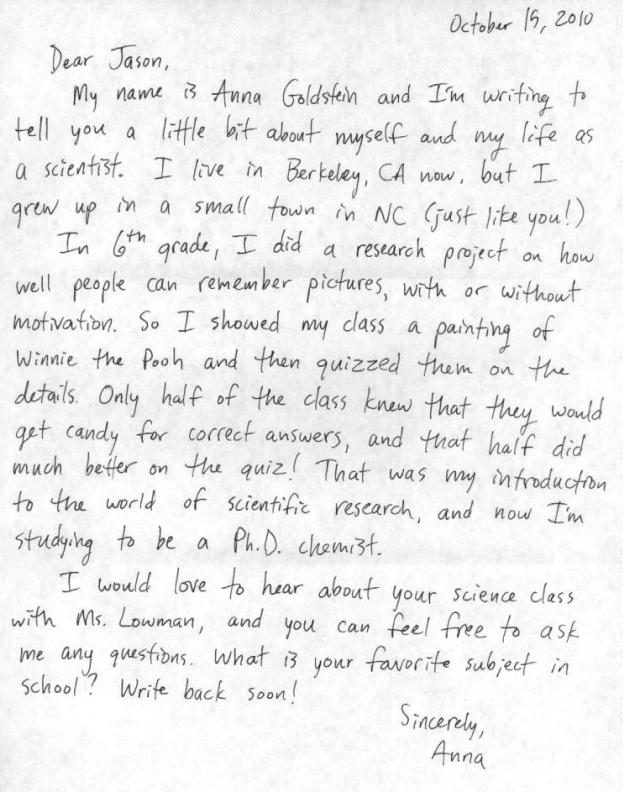 October 15, 2010
Dear Jason,
My name is Anna Goldstein and I'm writing to
tell you a little bit about myself and my life as
a scientist. I live in Berkeley, CA now, but I
grew up in a small town in NC (just like you!)
In 6th grade, I did a research project on how
well people can remember pictures, with or without
motivation. So I showed my class a painting of
Winnie the Pooh and then quizzed them on the
details. Only half of the class knew that they would
get candy for correct answers, and that half did
much better on the quiz! That was my introduction
to the world of scientific research, and now I'm
studying to be a Ph.D. chemist.
I would love to hear about your science class
with Ms. Lowman, and you can feel free to ask
me any questions. What is your favorite subject in
school? Write back soon!
Sincerely,
Anna